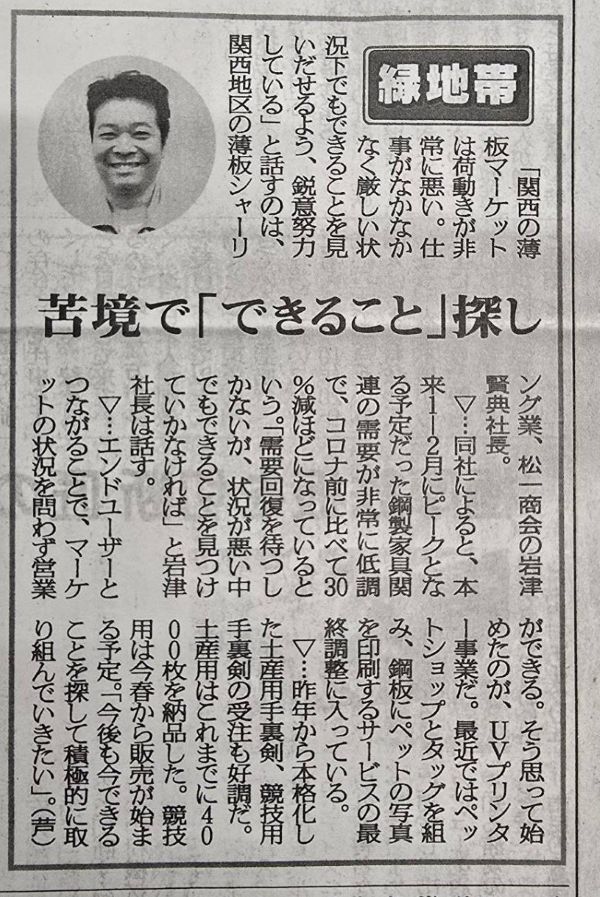 緑地帯
「関西の薄
板マーケット
は荷動きが非
常に悪い。仕
事がなかなか
なく厳しい状
況下でもできることを見
いだせるよう、鋭意努力
している」と話すのは、
関西地区の薄板シャーリ
苦境で「できること」探し
ング業、松一商会の岩津
賢典社長。
▽…同社によると、本
来1―2月にピークとな
る予定だった鋼製家具関
連の需要が非常に低調
で、コロナ前に比べて30
%減ほどになっていると
いう。「需要回復を待つし
かないが、状況が悪い中
でもできることを見つけ
ていかなければ」と岩津
社長は話す。
▽…エンドユーザーと
つながることで、マーケ
ットの状況を問わず営業
ができる。そう思って始
めたのが、UVプリンタ
ー事業だ。最近ではペッ
トショップとタッグを組
み、鋼板にペットの写真
を印刷するサービスの最
終調整に入っている。
▽…昨年から本格化し
た土産用手裏剣、競技用
手裏剣の受注も好調だ。
土産用はこれまでに40
00枚を納品した。競技
用は今春から販売が始ま
る予定。「今後も今できる
ことを探して積極的に取
り組んでいきたい」。(芦)